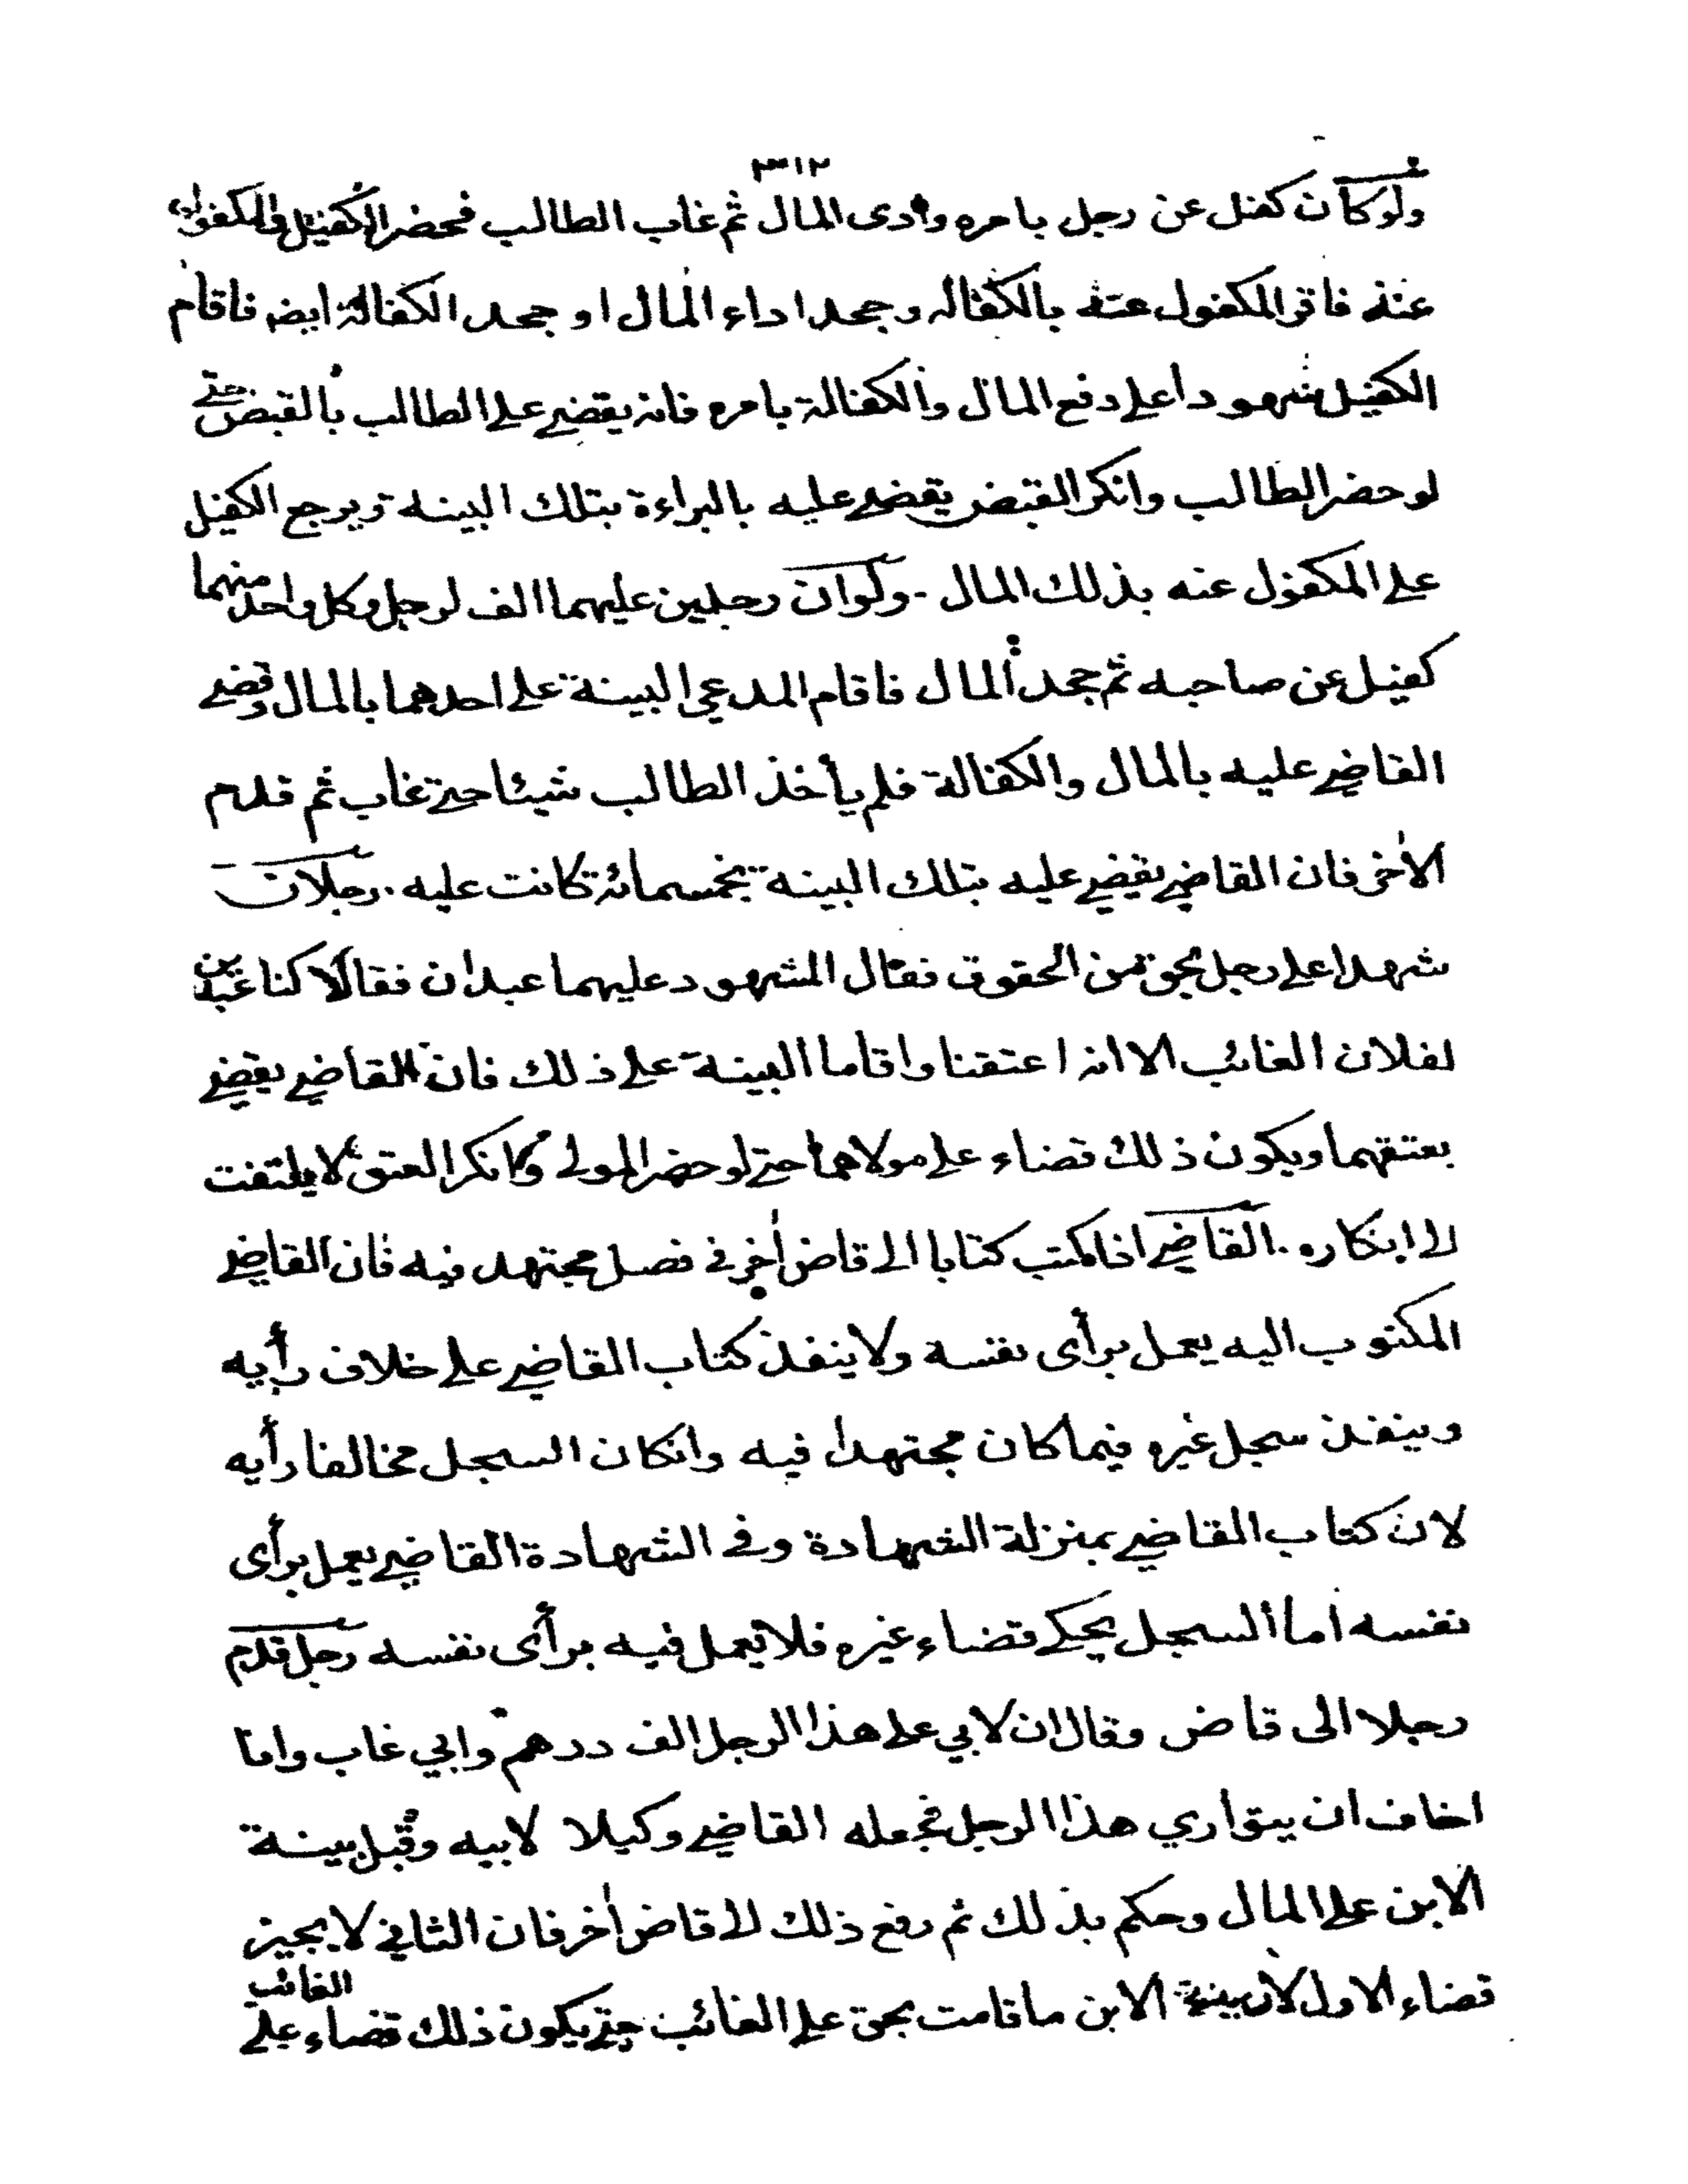 ٣١٢
ولو كان كفل عن رجل بامره وادى المال ثم غاب الطالب فحضر الكفيل والمكفول
عنه فاقر المكفول عنه بالكفالة وجحد اداء المال او جحد الكفالة ايضا فاقام
الكفيل شهودا على دفع المال والكفالة بامره فانه يقضي على الطالب بالقبض حتى
لو حضر الطالب وانكر القبض يقضى عليه بالبراءة بتلك البينة ويرجع الكفيل
على المكفول عنه بذلك المال - ولو ان رجلين عليهما الف لرجل وكل واحد منهما
كفيل عن صاحبه ثم جحد المال فاقام المدعي البينة على احدهما بالمال وقضى
القاضي عليه بالمال والكفالة فلم يأخذ الطالب شيئا حتى غاب ثم قدم
الأخر فان القاضي يقضي عليه بتلك البينة بخمسمائة كانت عليه . رجلان
شهدا على رجل بحق من الحقوق فقال المشهود عليهما عبدان فقالا كنا عبدين
لفلان الغائب الا انه اعتقنا واقاما البينة على ذلك فان القاضي يقضي
بعتقهما ويكون ذلك قضاء على مولاهما حتى لو حضر المولى وانكر العتق لا يلتفت
الى انكاره . القاضي اذا كتب كتابا الى قاض أخر في فصل مجتهد فيه فان القاضي
المكتوب اليه يعمل برأى نفسه ولا ينفذ كتاب القاضي على خلاف رأيه
وينفذ سجل غيره فيما كان مجتهدا فيه وانكان السجل مخالفا رأيه
لان كتاب القاضي بمنزلة الشهادة وفي الشهادة القاضي يعمل برأى
نفسه اما السجل يحكي قضاء غيره فلا يعمل فيه برأى نفسه رجل قدم
رجلا الى قاض وقال ان لابي على هذا الرجل الف درهم وابي غاب وانا
اخاف ان يتوارى هذا الرجل فجعله القاضي وكيلا لابيه وقبل بينة
الابن على المال وحكم بذلك ثم رفع ذلك الى قاض أخر فان الثاني لا يجيز
قضاء الاول لان بينة الابن ما قامت بحق على الغائب حتى يكون ذلك قضاء على الغائب